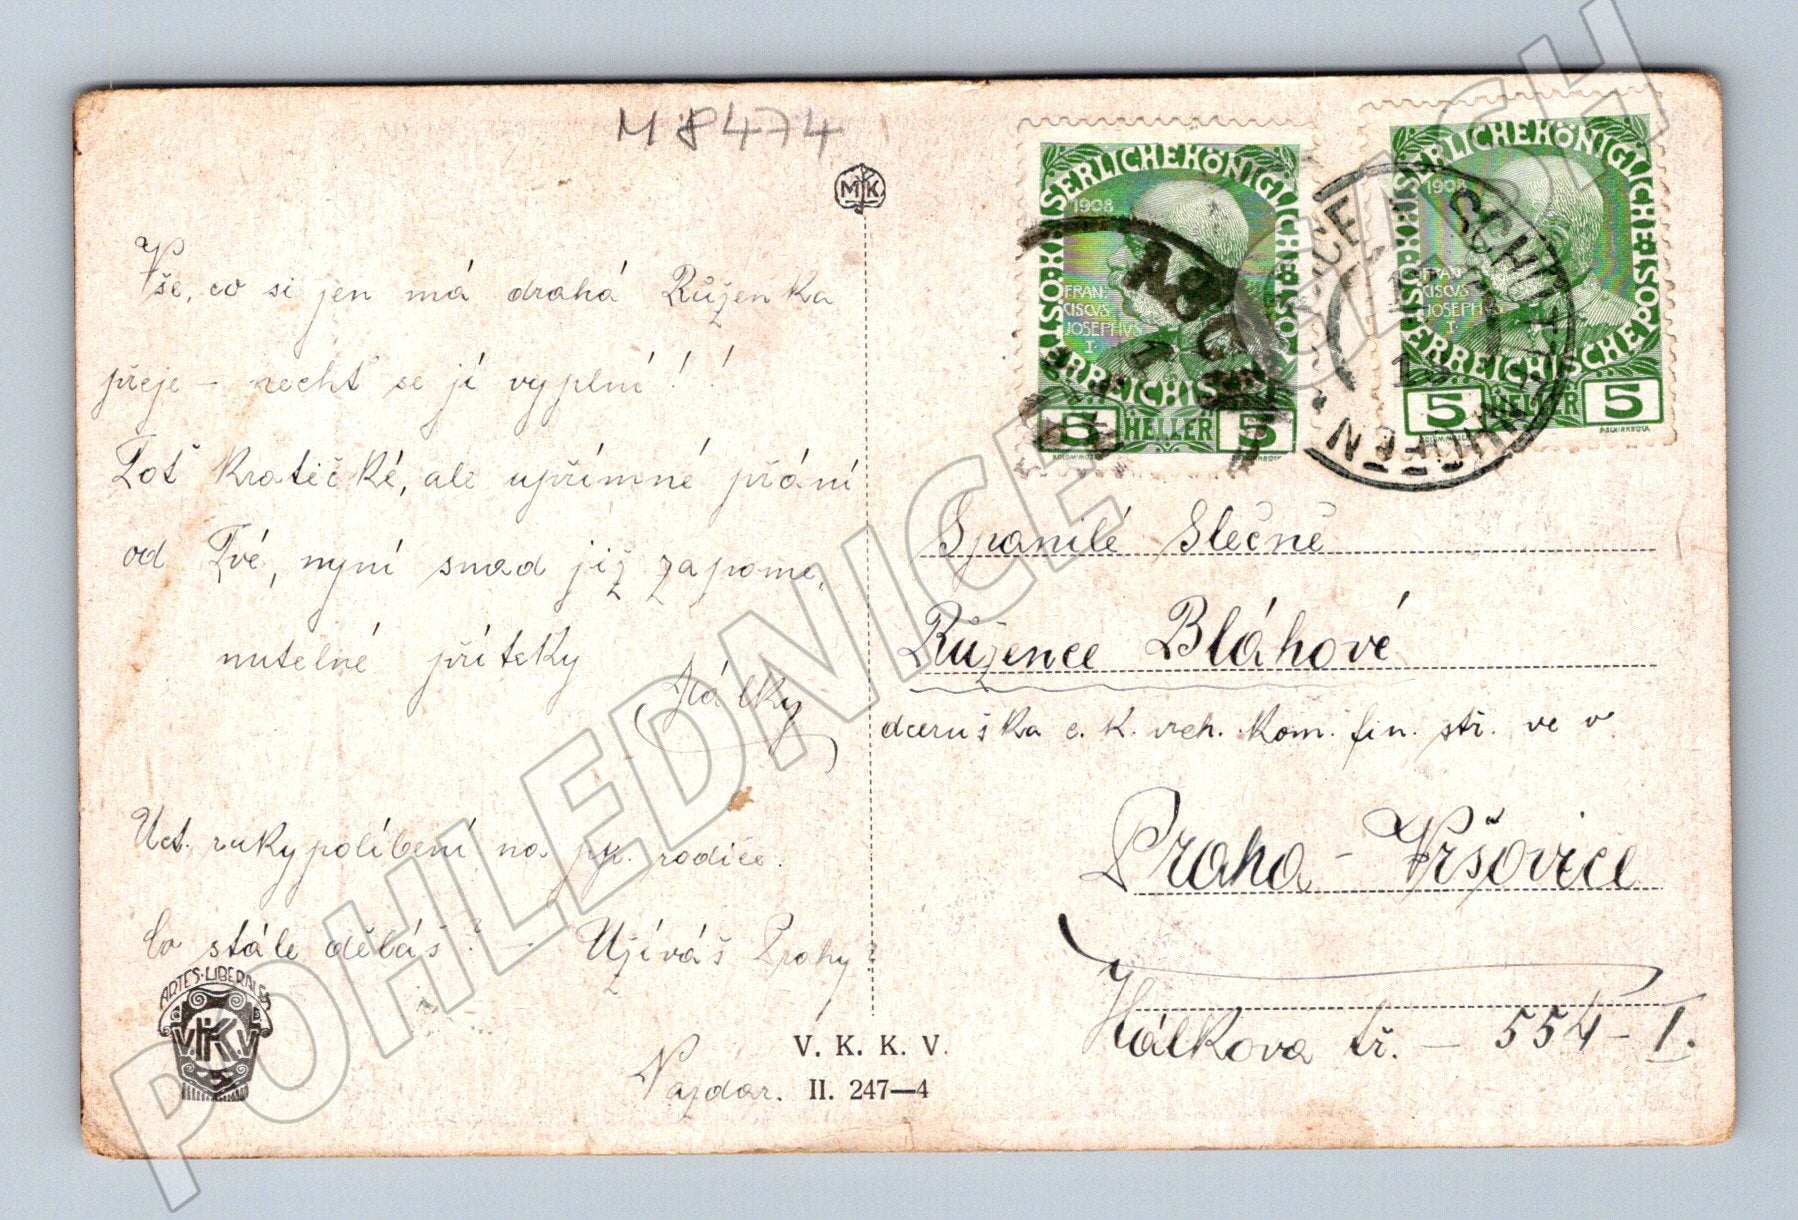 M 8474
MK
Vše, co si jen má drahá Růženka
přeje – nechť se jí vyplní!!
Toť kratičké, ale upřímné přání
od Tvé, nyní snad již zapome,
nutelné přítelky
Uct. rukypolíbení na pp. rodiče.
Co stále děláš? – Užíváš Prahy?
Nazdar.
ARTES·LIBERALES
V.K.K.V.
V. K. K. V.
II. 247—4
KAISERLICHEKÖNIGLICHE ÖSTERREICHISCHE POST
1908
FRAN
CISCVS
JOSEPHVS
I
5 HELLER 5
KAISERLICHEKÖNIGLICHE ÖSTERREICHISCHE POST
1908
FRAN
CISCVS
JOSEPHVS
I
5 HELLER 5
SCHÜTTENHOFEN
Spanilé Slečně
Růžence Bláhové
dceruška c. k. vrch. kom. fin. str. ve v.
Praha – Vršovice
Hálkova tř. – 554–I.
POHLEDNICE